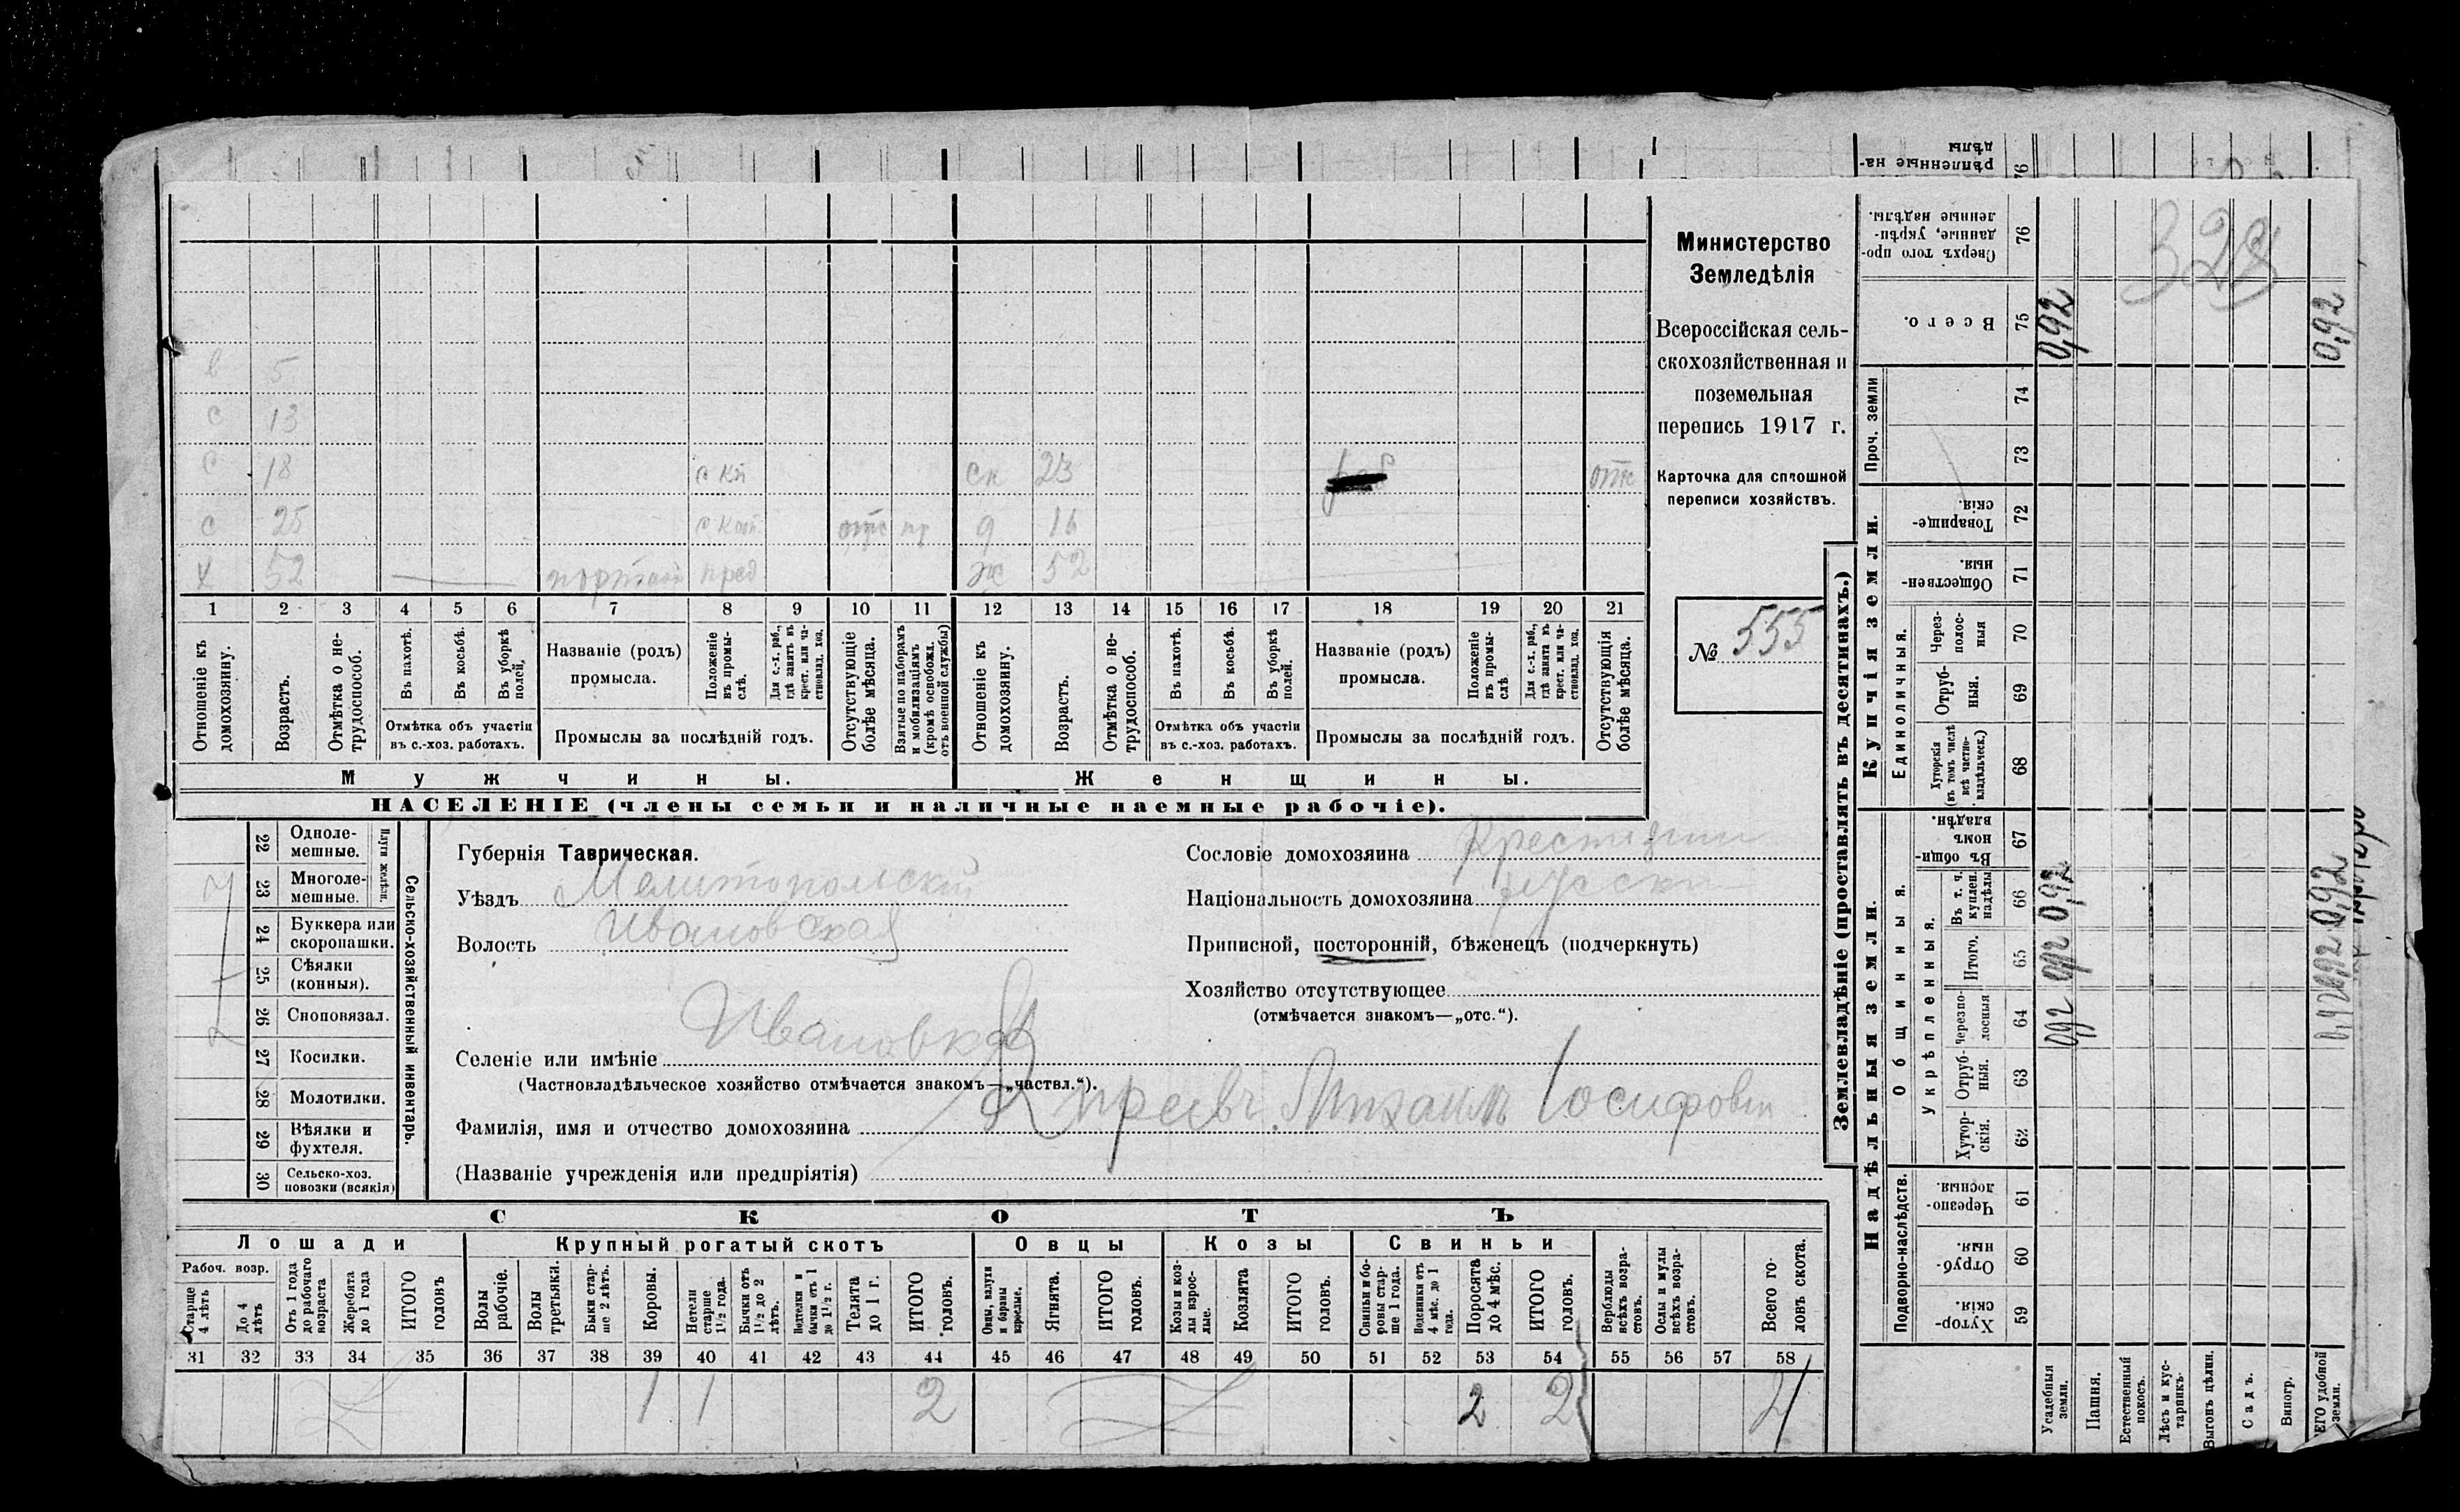 в 5
с 13
с 18 с кп ск 23 отс
с 25 отс пр д 16
х 52 портной пред ж 52
1 2 3 4 5 6 7 8 9 10 11 12 13 14 15 16 17 18 19 20 21
Отношеніе къ домохозяину.
Возрастъ.
Отмѣтка о нетрудоспособ.
Въ пахотѣ.
Въ косьбѣ.
Въ уборкѣ полей.
Отмѣтка объ участіи
въ с.-хоз. работахъ.
Названіе (родъ)
промысла.
Положеніе въ промыслѣ.
Для с.-х. раб., гдѣ занятъ въ крест. или частновлад. хоз.
Промыслы за послѣдній годъ.
Отсутствующіе болѣе мѣсяца.
Взятые по наборамъ и мобилизаціямъ (кромѣ освобожд. отъ военной службы)
Отношеніе къ домохозяину.
Возрастъ.
Отмѣтка о нетрудоспособ.
Въ пахотѣ.
Въ косьбѣ.
Въ уборкѣ полей.
Отмѣтка объ участіи
въ с.-хоз. работахъ.
Названіе (родъ)
промысла.
Положеніе въ промыслѣ
Для с.-х. раб., гдѣ занята въ крест. или частновлад. хоз.
Промыслы за послѣдній годъ.
Отсутствующія болѣе мѣсяца.
Мужчины.
Женщины.
НАСЕЛЕНІЕ (члены семьи и наличные наемные рабочіе).
Министерство
Земледѣлія
Всероссійская сель-
скохозяйственная и
поземельная
перепись 1917 г.
Карточка для сплошной
переписи хозяйствъ.
№ 555
22 Одноле-
мешные.
23 Многоле-
мешные.
Плуги желѣзн.
24 Буккера или
скоропашки.
25 Сѣялки
(конныя).
26 Сноповязал.
27 Косилки.
28 Молотилки.
29 Вѣялки и
фухтеля.
30 Сельско-хоз.
повозки (всякія)
Сельско-хозяйственный инвентарь.
Губернія Таврическая.
Уѣздъ Мелитопольскій
Волость Ивановская
Селеніе или имѣніе Ивановка
(Частновладѣльческое хозяйство отмѣчается знакомъ—„частвл.“).
Фамилія, имя и отчество домохозяина Михаилъ Іосифович
(Названіе учрежденія или предпріятія)
Сословіе домохозяина Крестянин
Національность домохозяина русски
Приписной, посторонній, бѣженецъ (подчеркнуть)
Хозяйство отсутствующее
(отмѣчается знакомъ—„отс.“).
СКОТЪ
Лошади
Рабоч. возр.
Старше 4 лѣтъ
До 4 лѣтъ
Отъ 1 года до рабочаго возраста
Жеребята до 1 года
ИТОГО головъ
Крупный рогатый скотъ
Волы рабочіе.
Волы третьяки.
Быки старше 2 лѣтъ.
Коровы.
Нетели старше 1 1/2 года.
Бычки отъ 1 1/2 до 2 лѣтъ.
Нетелки и бычки отъ 1 до 1 1/2 г.
Телята до 1 г.
ИТОГО головъ.
Овцы
Овцы, валухи и бараны взрослые.
Ягнята.
ИТОГО головъ.
Козы
Козы и козлы взрослые.
Козлята
ИТОГО головъ.
Свиньи
Свиньи и боровы старше 1 года.
Подсвинки отъ 4 мѣс. до 1 года.
Поросята до 4 мѣс.
ИТОГО головъ.
Верблюды всѣхъ возрастовъ.
Ослы и мулы всѣхъ возрастовъ.
Всего головъ скота.
31 32 33 34 35 36 37 38 39 40 41 42 43 44 45 46 47 48 49 50 51 52 53 54 55 56 57 58
1 1 2 2 2 4
Землевладѣніе (проставлять въ десятинахъ.)
Купчія земли.
Надѣльныя земли.
76 Сверхъ того проданные, укрѣпленные надѣлы.
75 Всего. 0,92 0,92
Проч. земли
74
73
72 Товарищескія.
71 Общественныя.
Единоличныя.
70 Черезполосныя
69 Отрубныя.
68 Хуторскія (въ томъ числѣ всѣ частновладѣльческ.)
Общинныя.
67 Въ общинномъ владѣн.
Укрѣпленныя.
66 Въ т. ч. куплен. надѣлы 0,92 0,92
65 Итого. 0,92 0,92
64 Черезполосныя 0,92 0,92
63 Отрубныя.
62 Хуторскія.
Подворно-наслѣдств.
61 Черезполосныя.
60 Отрубныя.
59 Хуторскія.
Усадебныя земли.
Пашня.
Естественный покосъ.
Лѣсъ и кустарникъ.
Выгонъ цѣлин.
Садъ.
Виногр.
ЕГО удобной земли.